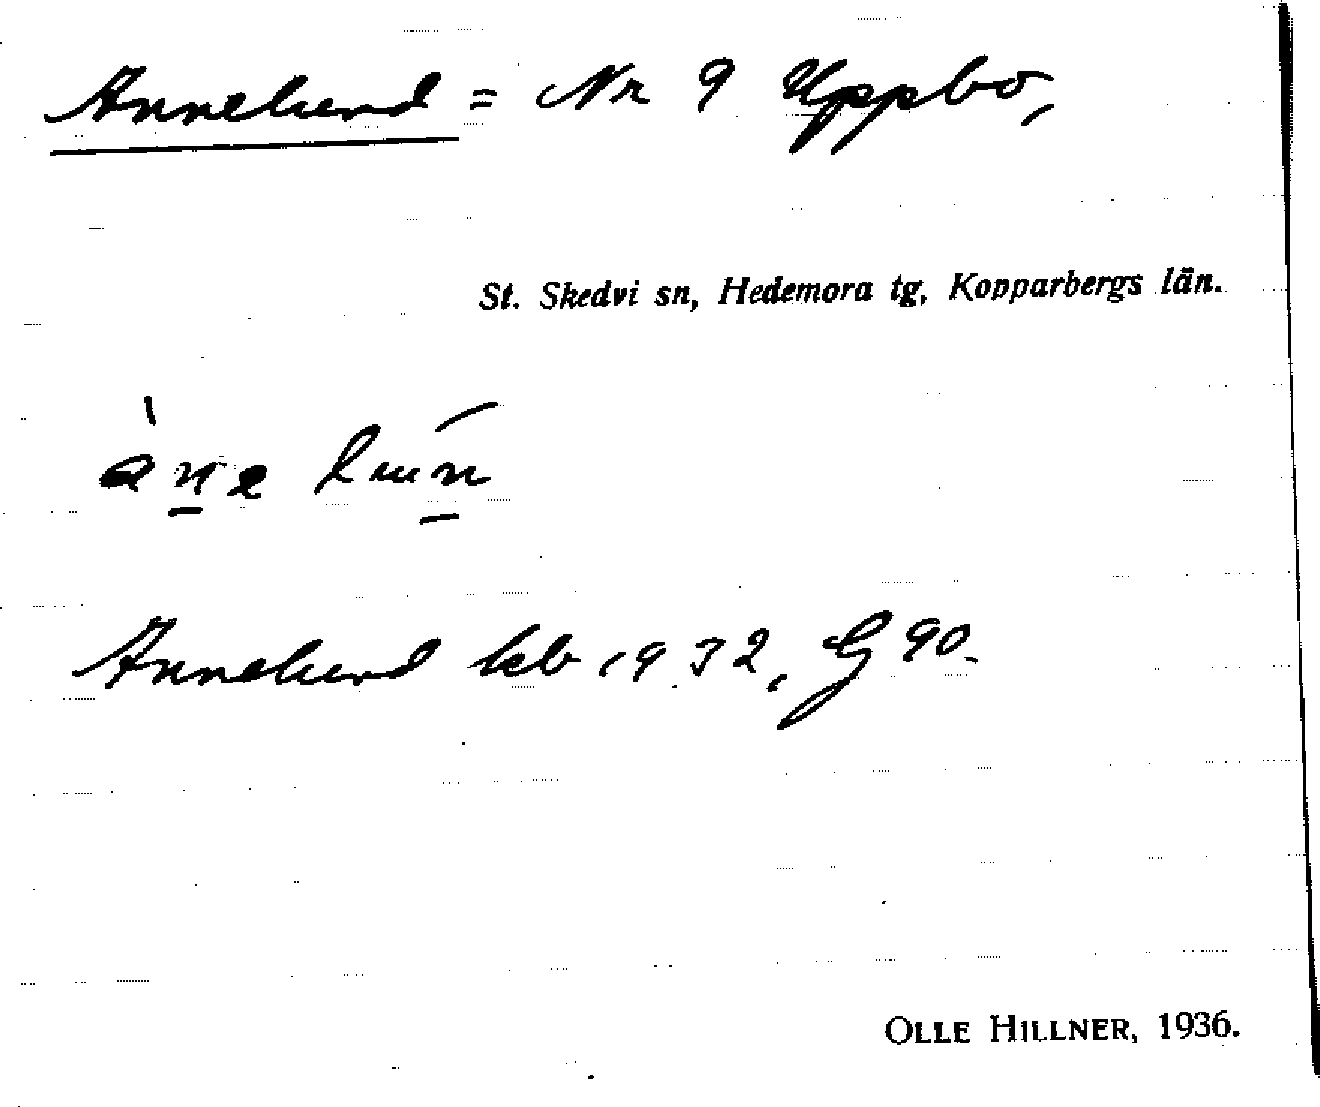 Annelund = Nr 9 Uppbo,
St. Skedvi sn, Hedemora tg, Kopparbergs län.
Annelund kb 1932, G 90.
OLLE HILLNER, 1936.